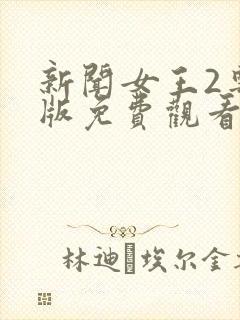 新聞女王2
版免費觀看
林迪 埃尔金